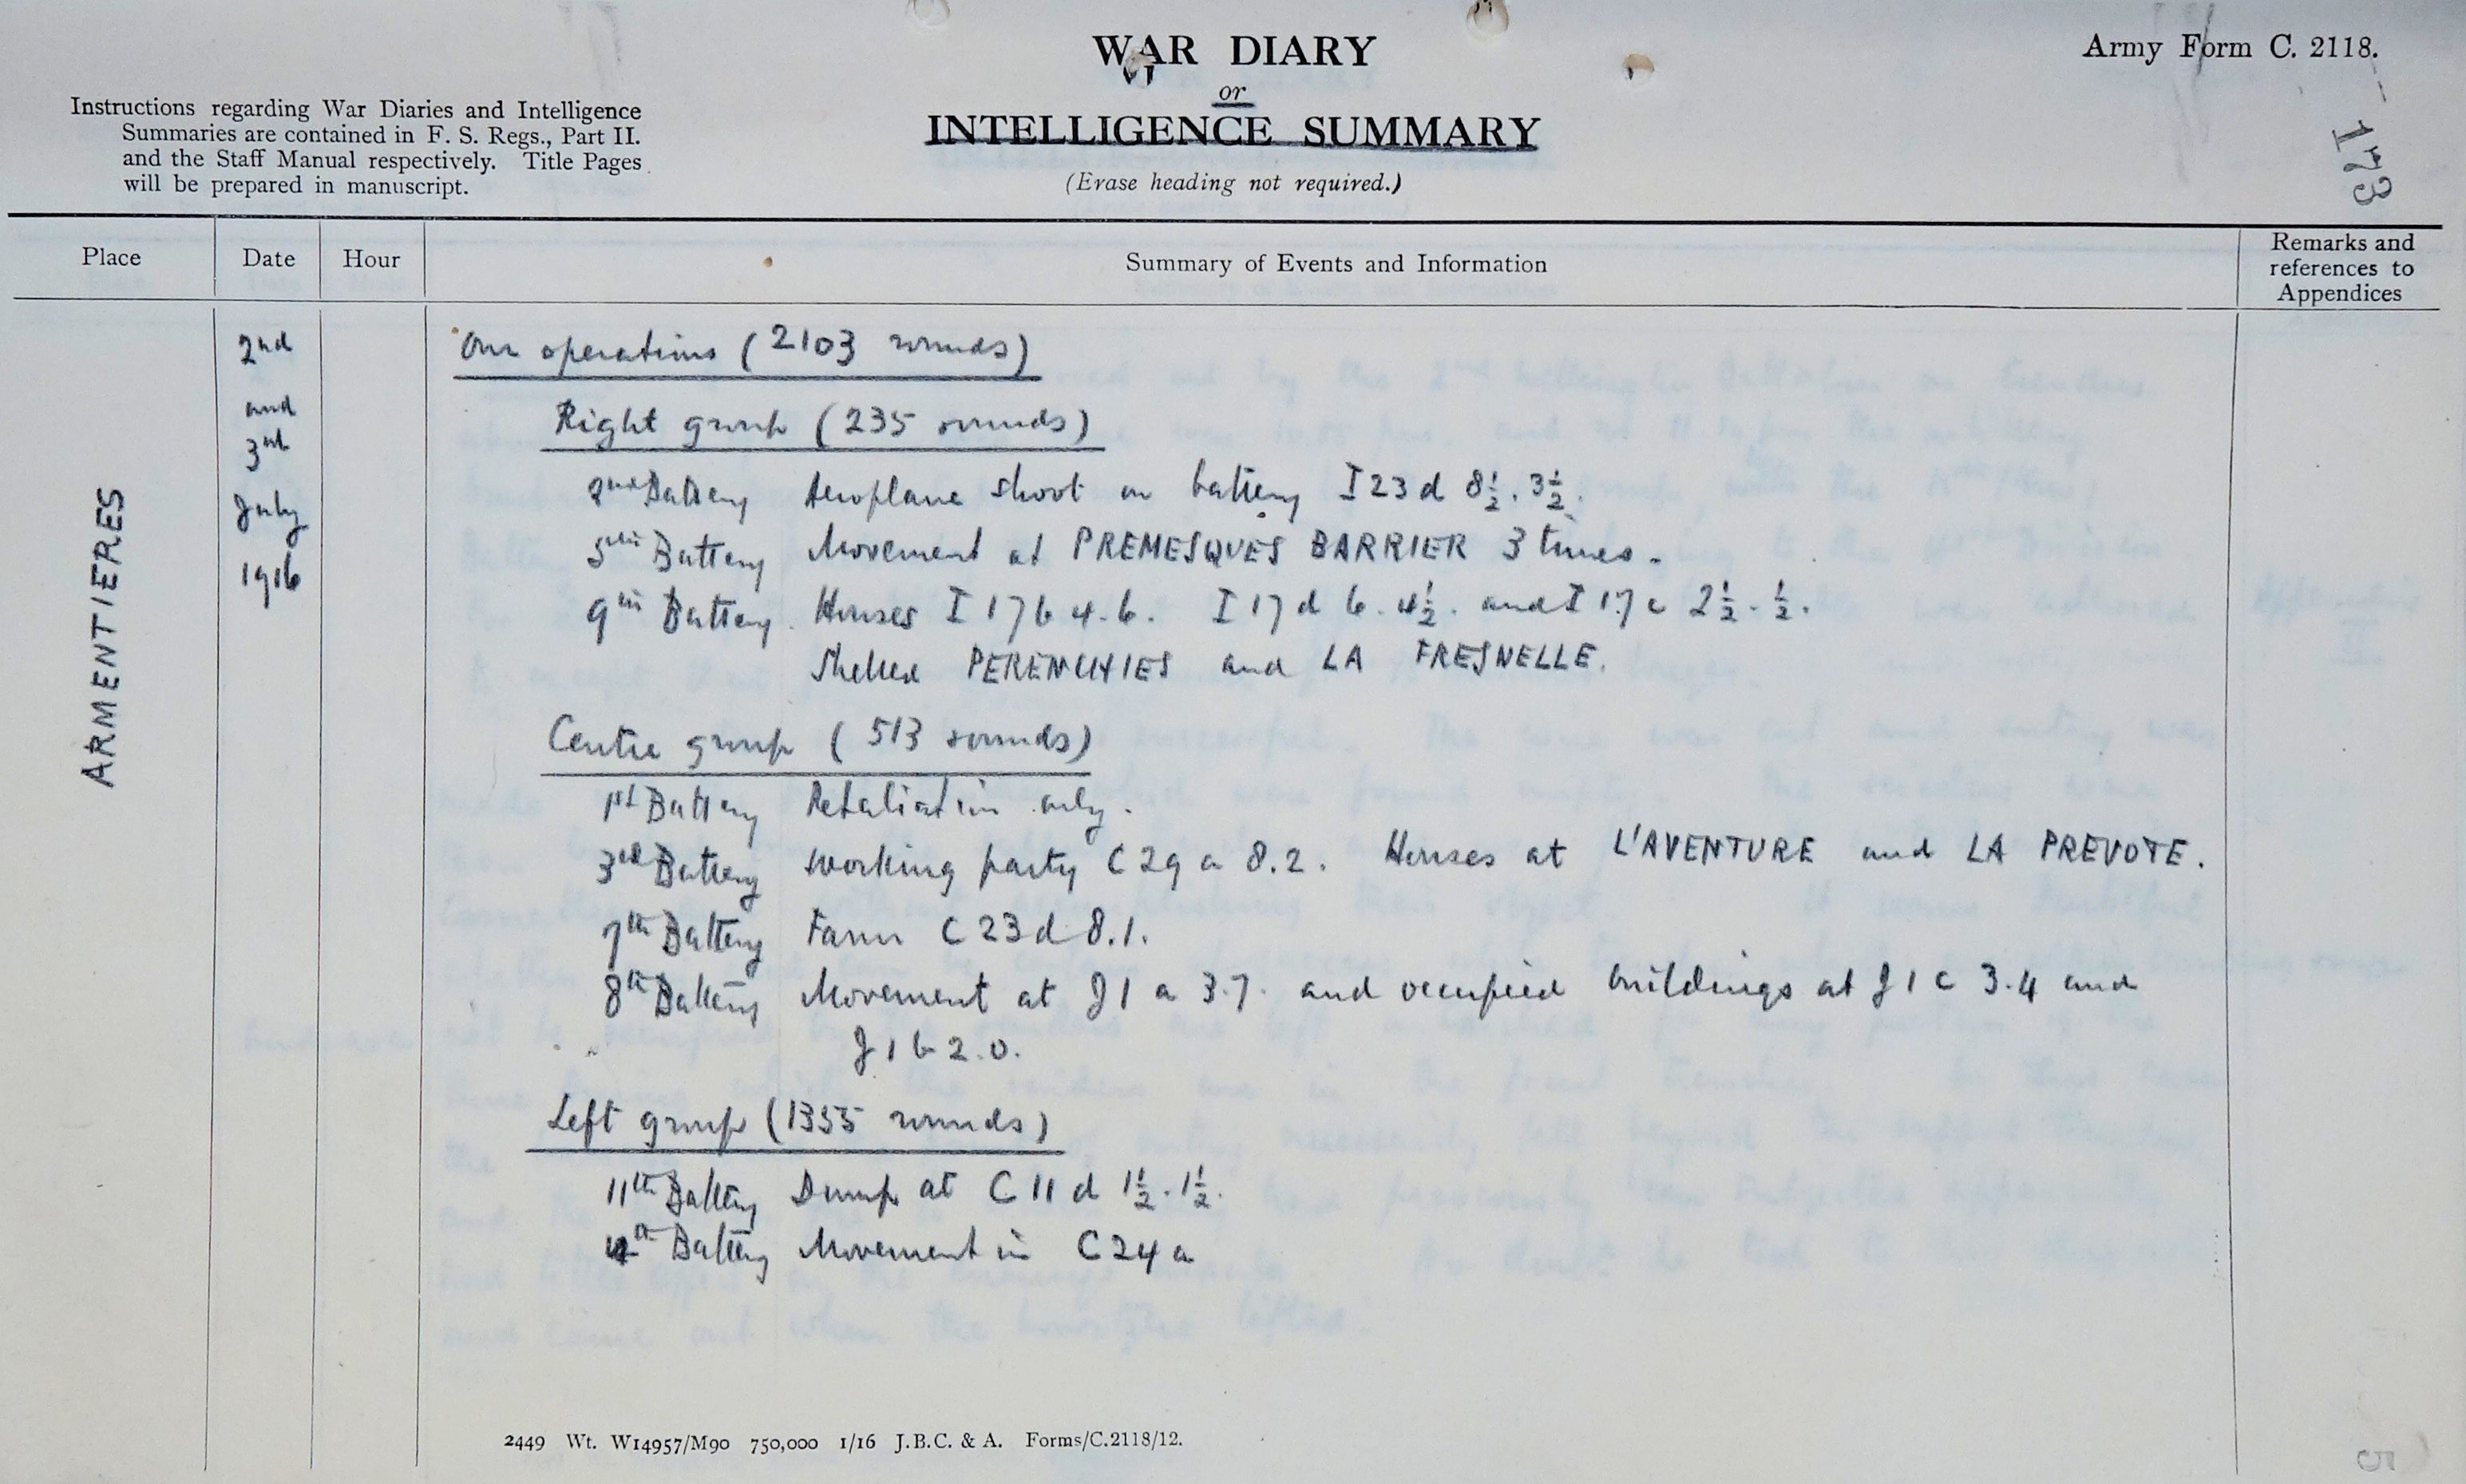 WAR DIARY
or
INTELLIGENCE SUMMARY
(Erase heading not required.)
Army Form C. 2118.
173
Instructions regarding War Diaries and Intelligence
Summaries are contained in F. S. Regs., Part II.
and the Staff Manual respectively. Title Pages
will be prepared in manuscript.
Place
Date
Hour
Summary of Events and Information
Remarks and
references to
Appendices
ARMENTIERES
2nd
and
3rd
July
1916
Our operations (2103 rounds)
Right group (235 rounds)
2nd Battery Aeroplane shoot on battery I 23 d 8½. 3½.
5th Battery Movement at PREMESQUES BARRIER 3 times.
9th Battery. Houses I 17 b 4.6. I 17 d 6. 4½. and I 17 c 2½. ½.
Shelled PERENCHIES and LA FRESNELLE.
Centre group (513 rounds)
1st Battery Retaliation only.
3rd Battery Working party C 29 a 8.2. Houses at L'AVENTURE and LA PREVOTE.
7th Battery Farm C 23 d 8.1.
8th Battery Movement at J 1 a 3.7. and occupied buildings at J 1 c 3.4 and
J 1 b 2.0.
Left group (1355 rounds)
11th Battery Dump at C 11 d 1½. 1½.
Battery Movement in C 24 a
2449 Wt. W14957/M90 750,000 1/16 J.B.C. & A. Forms/C.2118/12.